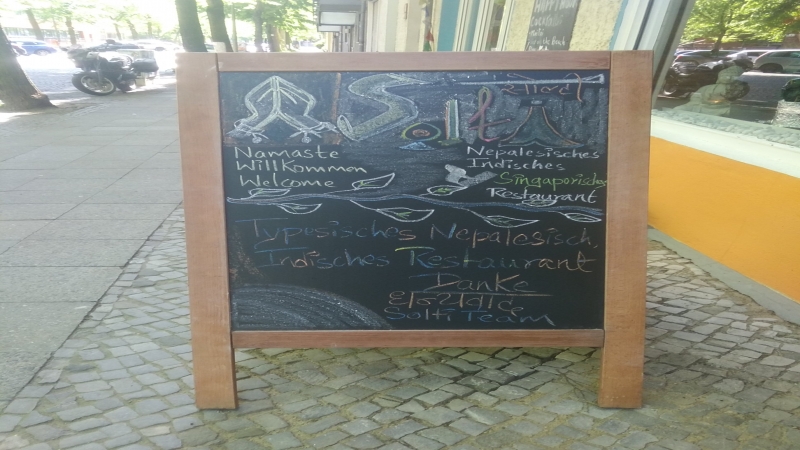 सोल्टी
Solti
Namaste
Willkommen
Welcome
Nepalesisches
Indisches
Singaporisches
Restaurant
Typesisches Nepalesisch,
Indisches Restaurant
Danke
धन्यवाद
Solti Team